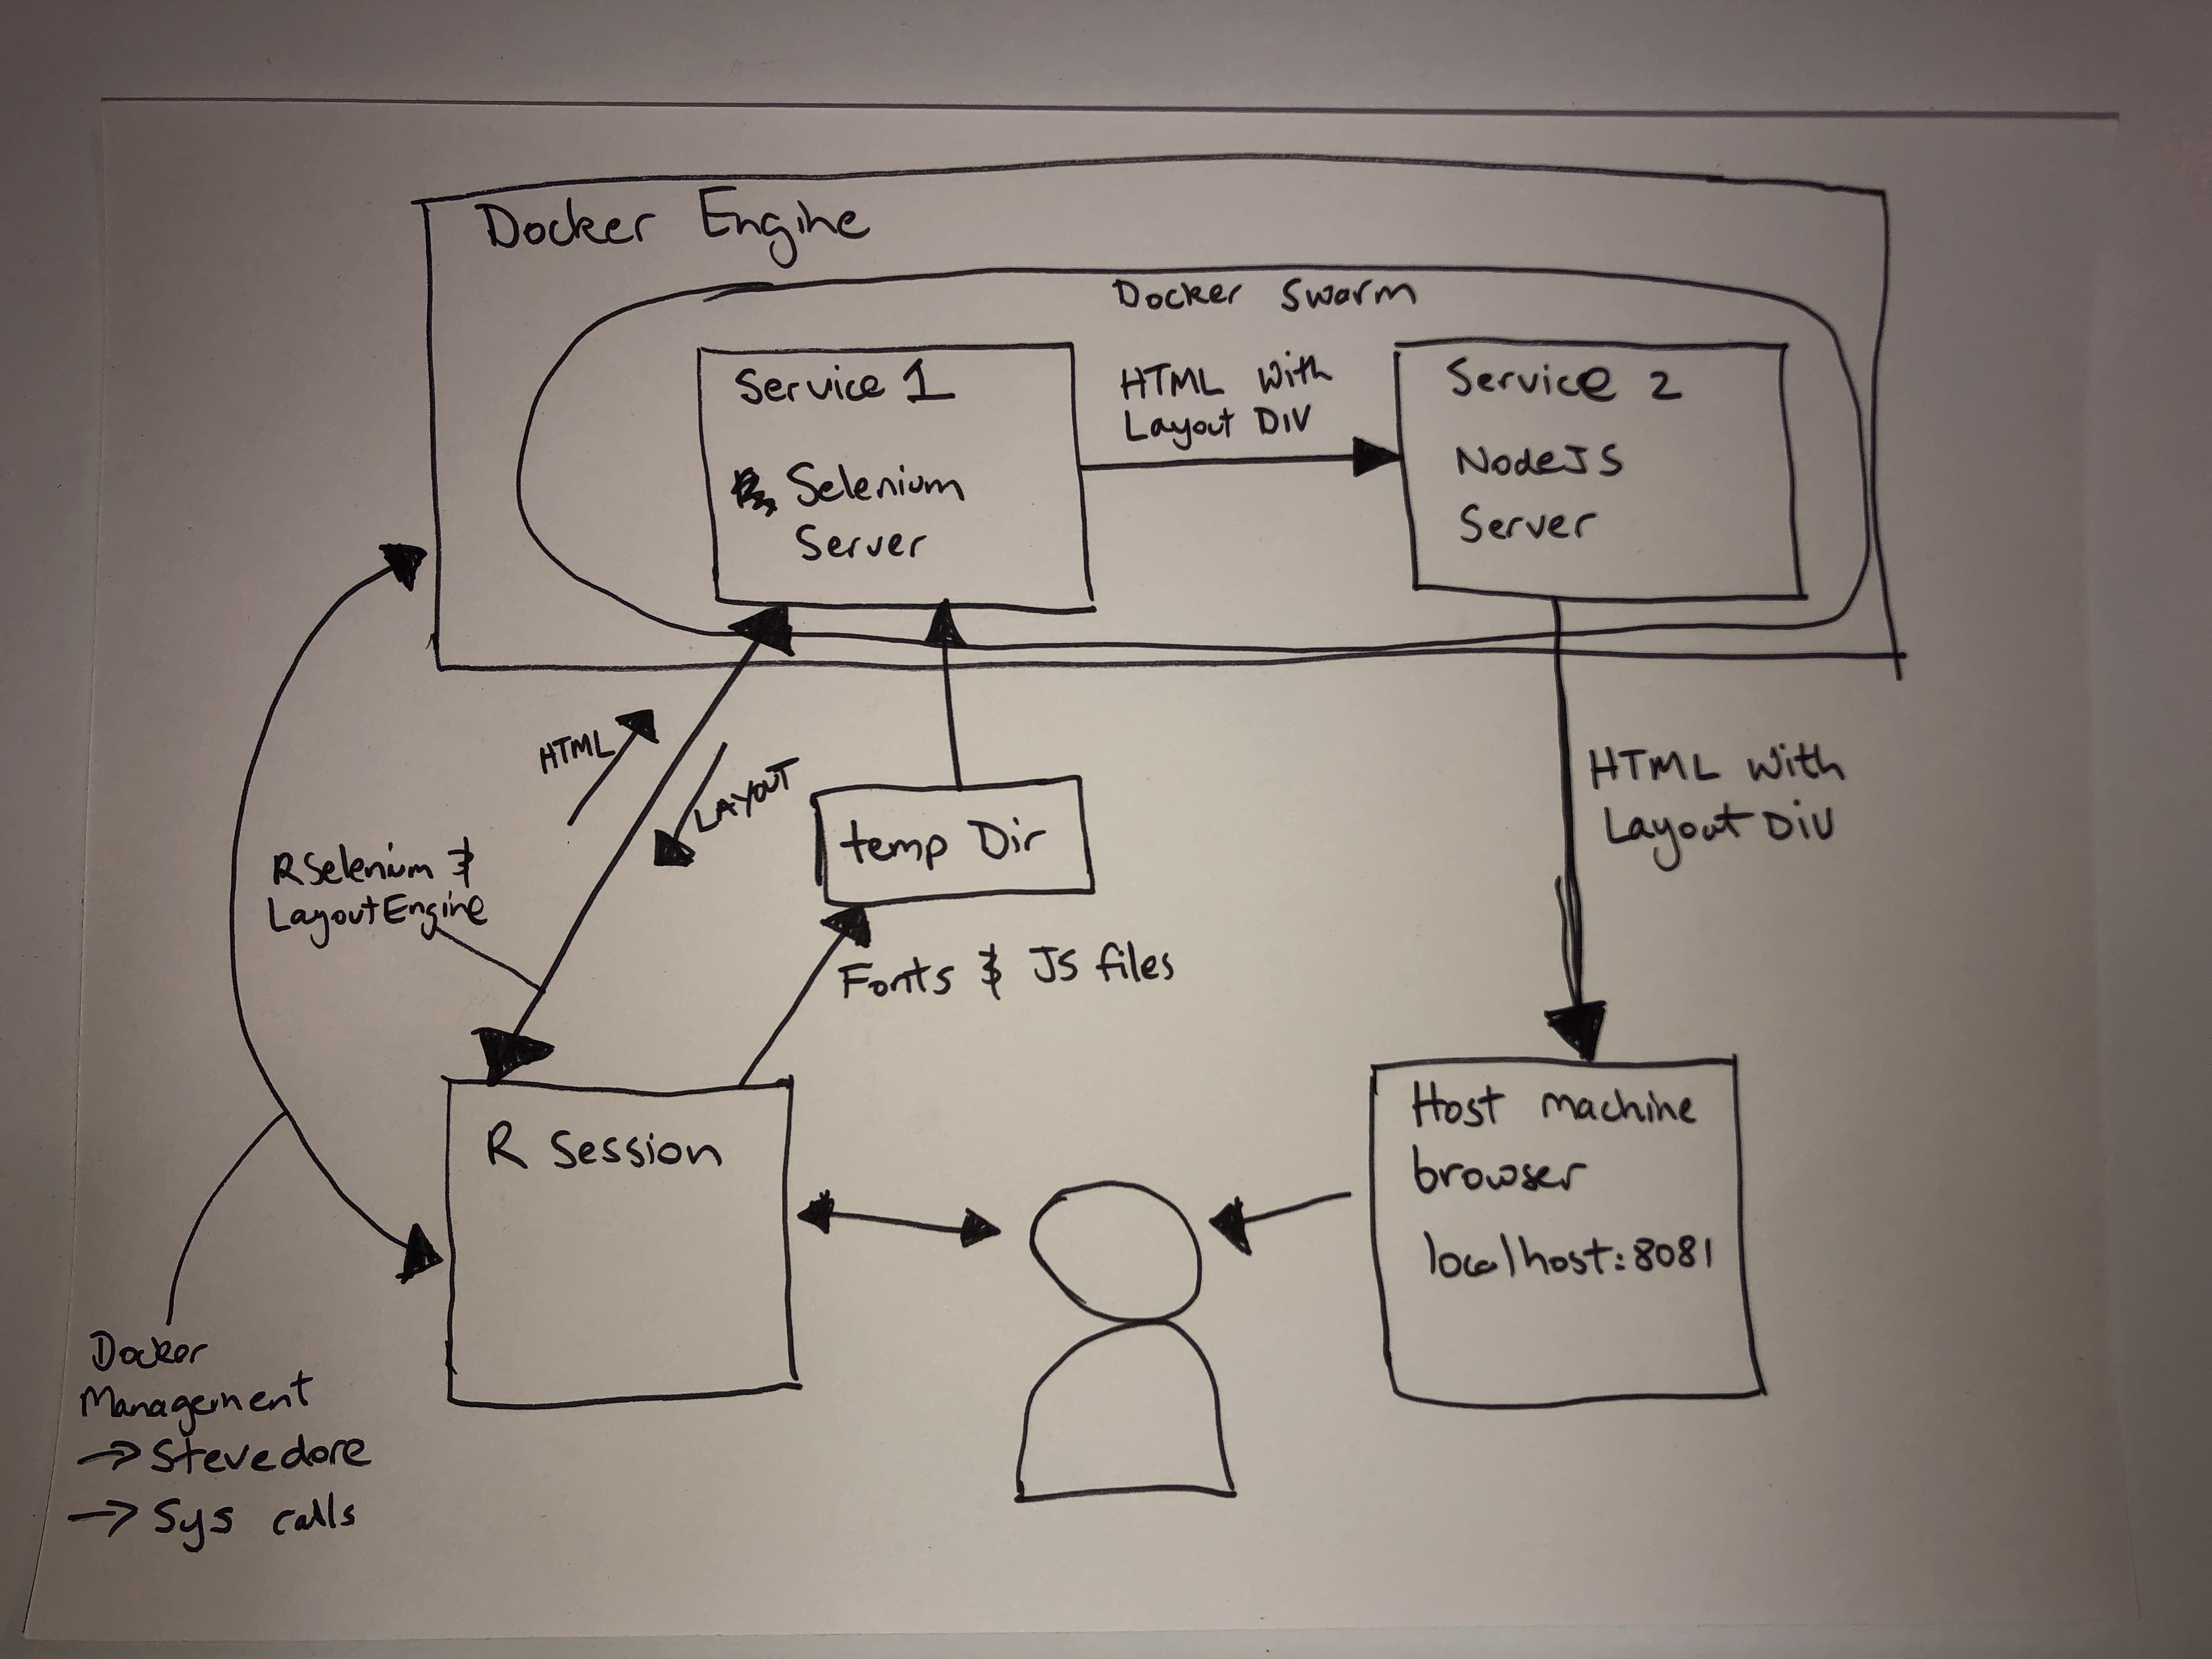 Docker Engine
Docker Swarm
Service 1
Selenium
Server
HTML with
Layout DIV
Service 2
NodeJS
Server
HTML
LAYOUT
RSelenium &
LayoutEngine
temp Dir
Fonts & JS files
HTML with
Layout DIV
R Session
Host machine
browser
localhost:8081
Docker
Management
→ Stevedore
→ Sys calls